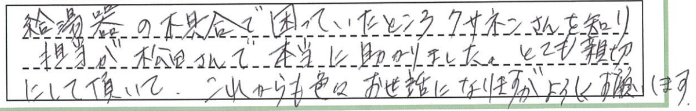 給湯器の不具合で困っていたところクサネンさんを知り
担当が松田さんで本当に助かりました。とても親切
にして頂いて、これからも色々お世話になりますがよろしくお願いします